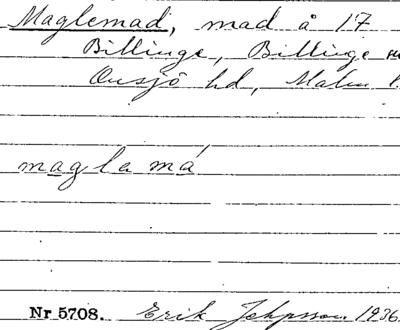 Maglemad, mad å 17
Billinge, Billinge
Onsjö hd, Malm l.
magla má
Nr 5708. Erik Jeppsson 1936